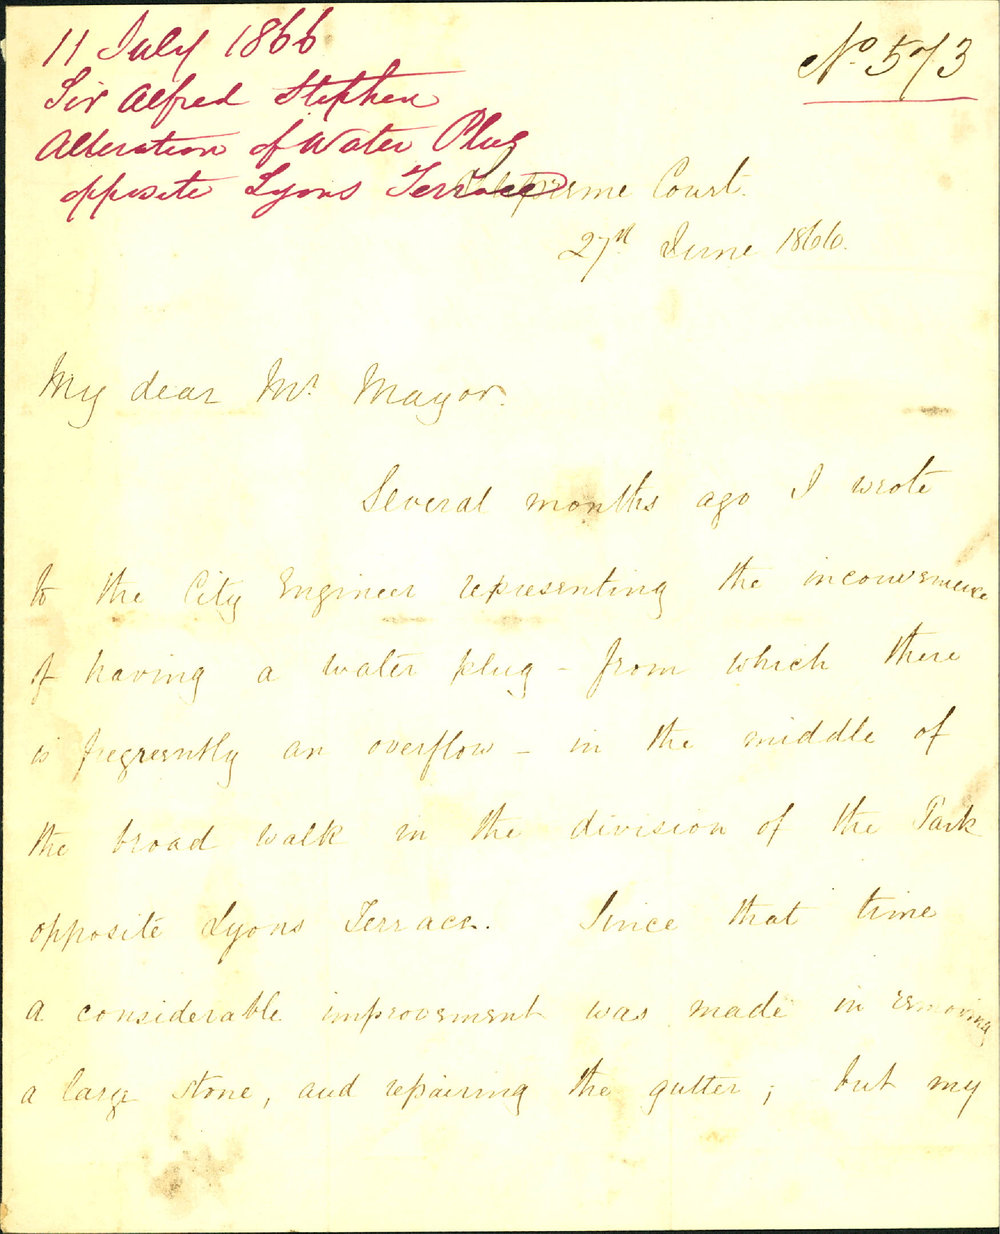 11 July 1866
Sir Alfred Stephen
Alteration of Water Plug
opposite Lyons Terrace
No. 573
Supreme Court.
27th June 1866.
My dear Mr. Mayor.
Several months ago I wrote
to the City Engineer representing the inconvenience
of having a water plug – from which there
is frequently an overflow – in the middle of
the broad walk in the division of the Park
opposite Lyons Terrace. Since that time
a considerable improvement was made in removing
a large stone, and repairing the gutter; but my